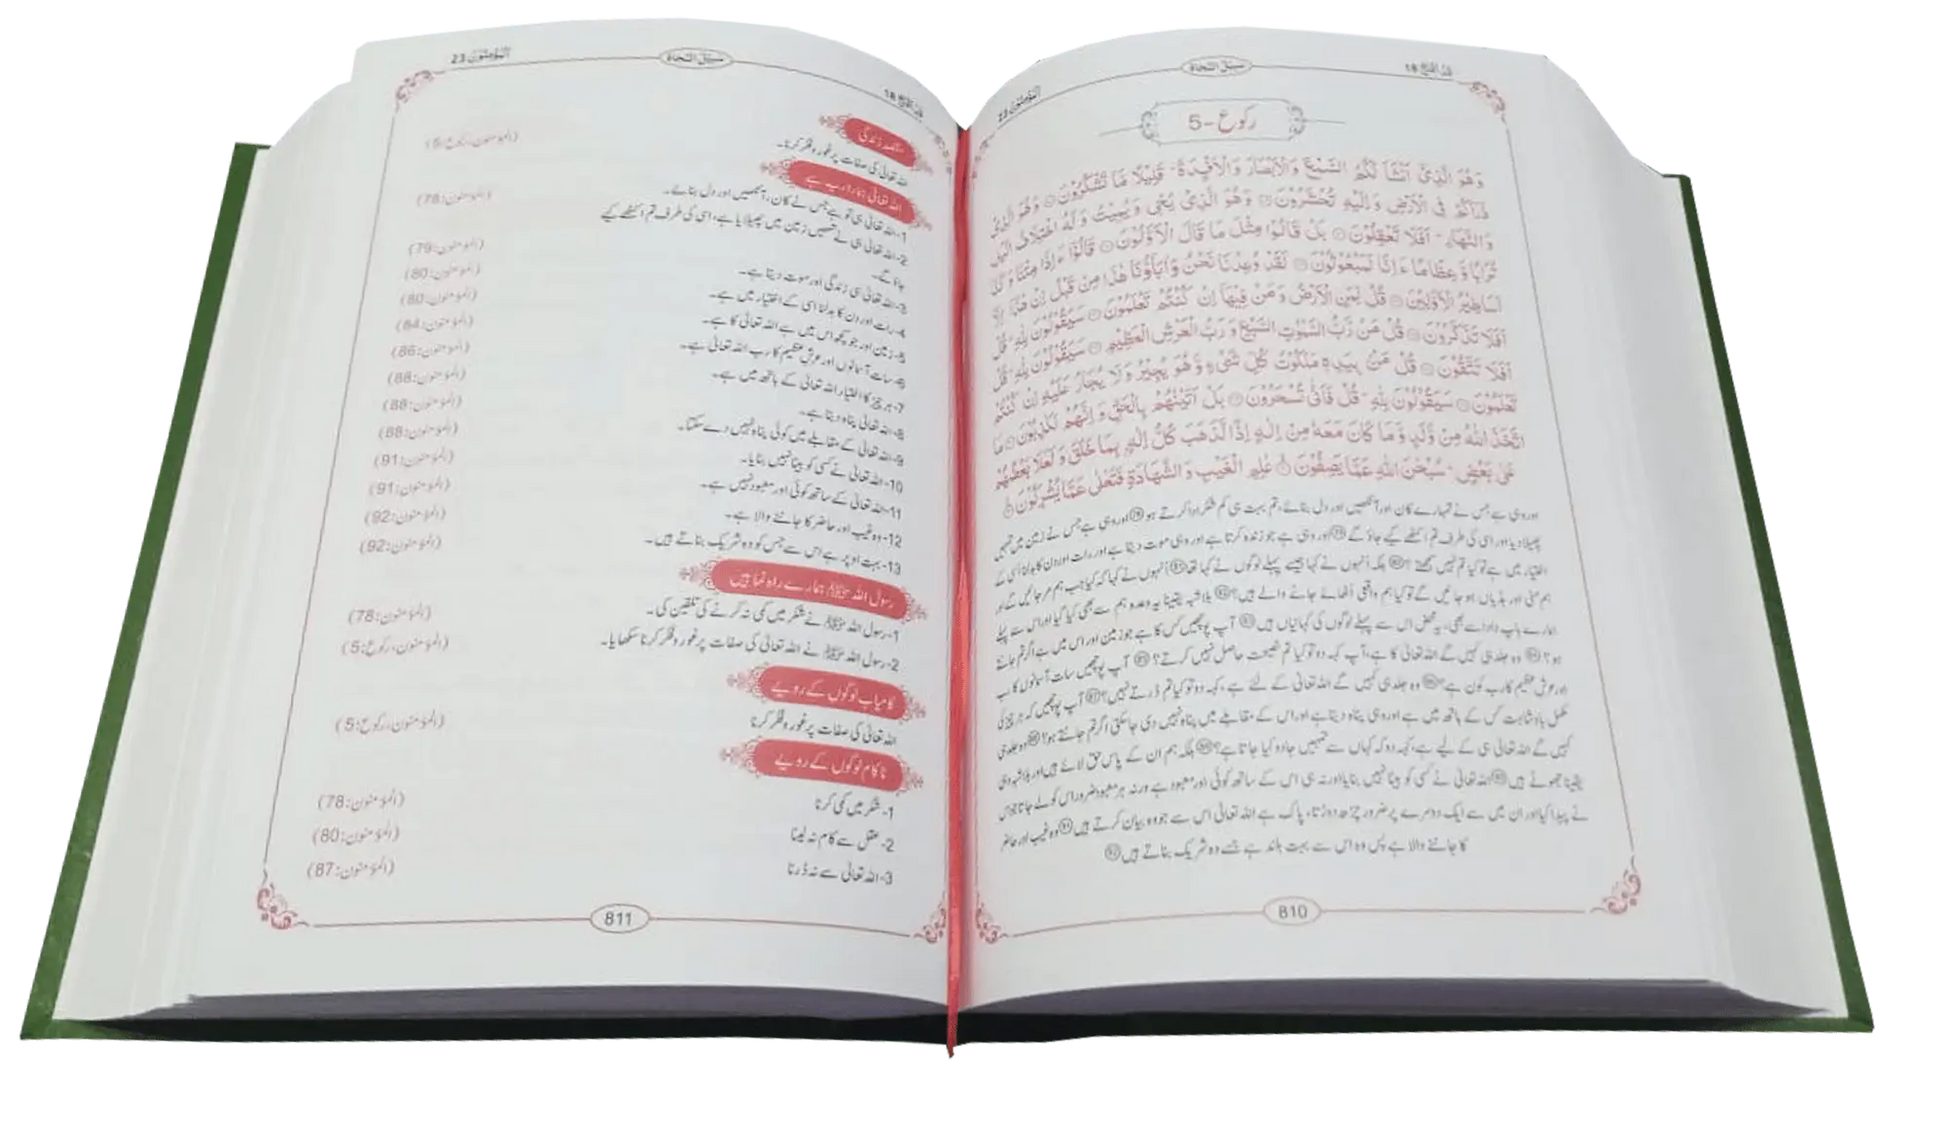 قَدْ اَفْلَحَ 18
سبیل النجاۃ
اَلْمُؤْمِنُوْن 23
رکوع -5
وَهُوَ الَّذِیْٓ اَنْشَاَ لَكُمُ السَّمْعَ وَالْاَبْصَارَ وَالْاَفْـِٕدَةَ ؕ قَلِیْلًا مَّا تَشْكُرُوْنَ ۝ وَهُوَ الَّذِیْ
ذَرَاَكُمْ فِی الْاَرْضِ وَاِلَیْهِ تُحْشَرُوْنَ ۝ وَهُوَ الَّذِیْ یُحْیٖ وَیُمِیْتُ وَلَهُ اخْتِلَافُ الَّیْلِ
وَالنَّهَارِ ؕ اَفَلَا تَعْقِلُوْنَ ۝ بَلْ قَالُوْا مِثْلَ مَا قَالَ الْاَوَّلُوْنَ ۝ قَالُوْٓا ءَاِذَا مِتْنَا وَكُنَّا
تُرَابًا وَّعِظَامًا ءَاِنَّا لَمَبْعُوْثُوْنَ ۝ لَقَدْ وُعِدْنَا نَحْنُ وَاٰبَآؤُنَا هٰذَا مِنْ قَبْلُ اِنْ هٰذَآ اِلَّآ
اَسَاطِیْرُ الْاَوَّلِیْنَ ۝ قُلْ لِّمَنِ الْاَرْضُ وَمَنْ فِیْهَآ اِنْ كُنْتُمْ تَعْلَمُوْنَ ۝ سَیَقُوْلُوْنَ لِلّٰهِ ؕ قُلْ
اَفَلَا تَذَكَّرُوْنَ ۝ قُلْ مَنْ رَّبُّ السَّمٰوٰتِ السَّبْعِ وَرَبُّ الْعَرْشِ الْعَظِیْمِ ۝ سَیَقُوْلُوْنَ لِلّٰهِ ؕ قُلْ
اَفَلَا تَتَّقُوْنَ ۝ قُلْ مَنْۢ بِیَدِهٖ مَلَكُوْتُ كُلِّ شَیْءٍ وَّهُوَ یُجِیْرُ وَلَا یُجَارُ عَلَیْهِ اِنْ كُنْتُمْ
تَعْلَمُوْنَ ۝ سَیَقُوْلُوْنَ لِلّٰهِ ؕ قُلْ فَاَنّٰی تُسْحَرُوْنَ ۝ بَلْ اَتَیْنٰهُمْ بِالْحَقِّ وَاِنَّهُمْ لَكٰذِبُوْنَ ۝ مَا
اتَّخَذَ اللّٰهُ مِنْ وَّلَدٍ وَّمَا كَانَ مَعَهٗ مِنْ اِلٰهٍ اِذًا لَّذَهَبَ كُلُّ اِلٰهٍۭ بِمَا خَلَقَ وَلَعَلَا بَعْضُهُمْ
عَلٰی بَعْضٍ ؕ سُبْحٰنَ اللّٰهِ عَمَّا یَصِفُوْنَ ۝ عٰلِمِ الْغَیْبِ وَالشَّهَادَةِ فَتَعٰلٰی عَمَّا یُشْرِكُوْنَ ۝
اور وہی ہے جس نے تمہارے کان اور آنکھیں اور دل بنائے، تم بہت ہی کم شکر ادا کرتے ہو اور وہی ہے جس نے زمین میں تمہیں
پھیلا دیا اور اسی کی طرف تم اکٹھے کیے جاؤ گے اور وہی ہے جو زندہ کرتا ہے اور وہی موت دیتا ہے اور رات اور دن کا بدلنا اسی کے
اختیار میں ہے تو کیا تم نہیں سمجھتے؟ بلکہ اُنہوں نے کہا جیسے پہلے لوگوں نے کہا تھا اُنہوں نے کہا کہ کیا جب ہم مر جائیں گے اور
ہم مٹی اور ہڈیاں ہو جائیں گے تو کیا ہم واقعی اُٹھائے جانے والے ہیں؟ بلاشبہ یقیناً یہ وعدہ ہم سے بھی کیا گیا اور اس سے پہلے
ہمارے باپ دادا سے بھی، یہ محض اس سے پہلے لوگوں کی کہانیاں ہیں آپ پوچھیں کس کا ہے جو زمین اور اس میں ہے اگر تم جانتے
ہو؟ وہ جلد ہی کہیں گے اللہ تعالیٰ کا ہے، آپ کہہ دو تو کیا تم نصیحت حاصل نہیں کرتے؟ آپ پوچھیں سات آسمانوں کا رب
اور عرشِ عظیم کا رب کون ہے؟ وہ جلد ہی کہیں گے اللہ تعالیٰ کے لئے ہے، کہہ دو تو کیا تم ڈرتے نہیں؟ آپ پوچھیں کہ ہر چیز کی
مکمل بادشاہت کس کے ہاتھ میں ہے اور وہی پناہ دیتا ہے اور اس کے مقابلے میں پناہ نہیں دی جا سکتی اگر تم جانتے ہو؟ وہ جلد ہی
کہیں گے اللہ تعالیٰ ہی کے لیے ہے، کہہ دو کہ کہاں سے تمہیں جادو کیا جاتا ہے؟ بلکہ ہم ان کے پاس حق لائے ہیں اور بلاشبہ وہی
یقیناً جھوٹے ہیں اللہ تعالیٰ نے کسی کو بیٹا نہیں بنایا اور نہ ہی اس کے ساتھ کوئی اور معبود ہے ورنہ ہر معبود ضرور اس کو لے جاتا جو اس
نے پیدا کیا اور ان میں سے ایک دوسرے پر ضرور چڑھ دوڑتا، پاک ہے اللہ تعالیٰ اس سے جو وہ بیان کرتے ہیں وہ غیب اور حاضر
کا جاننے والا ہے پس وہ اس سے بہت بلند ہے جسے وہ شریک بناتے ہیں
810
قَدْ اَفْلَحَ 18
سبیل النجاۃ
اَلْمُؤْمِنُوْن 23
مقصدِ زندگی
اللہ تعالیٰ کی صفات پر غور و فکر کرنا۔ (المؤمنون، رکوع:5)
اللہ تعالیٰ ہمارا رب ہے
1- اللہ تعالیٰ ہی تو ہے جس نے کان، آنکھیں اور دل بنائے۔ (المؤمنون:78)
2- اللہ تعالیٰ ہی نے تمہیں زمین میں پھیلایا ہے، اسی کی طرف تم اکٹھے کیے
جاؤ گے۔ (المؤمنون:79)
3- اللہ تعالیٰ ہی زندگی اور موت دیتا ہے۔ (المؤمنون:80)
4- رات اور دن کا بدلنا اسی کے اختیار میں ہے۔ (المؤمنون:80)
5- زمین اور جو کچھ اس میں ہے اللہ تعالیٰ کا ہے۔ (المؤمنون:84)
6- سات آسمانوں اور عرشِ عظیم کا رب اللہ تعالیٰ ہے۔ (المؤمنون:86)
7- ہر چیز کا اختیار اللہ تعالیٰ کے ہاتھ میں ہے۔ (المؤمنون:88)
8- اللہ تعالیٰ پناہ دیتا ہے۔ (المؤمنون:88)
9- اللہ تعالیٰ کے مقابلے میں کوئی پناہ نہیں دے سکتا۔ (المؤمنون:88)
10- اللہ تعالیٰ نے کسی کو بیٹا نہیں بنایا۔ (المؤمنون:91)
11- اللہ تعالیٰ کے ساتھ کوئی اور معبود نہیں ہے۔ (المؤمنون:91)
12- وہ غیب اور حاضر کا جاننے والا ہے۔ (المؤمنون:92)
13- بہت اوپر ہے اس سے جس کو وہ شریک بناتے ہیں۔ (المؤمنون:92)
رسول اللہ ﷺ ہمارے راہ نما ہیں
1- رسول اللہ ﷺ نے شکر میں کمی نہ کرنے کی تلقین کی۔ (المؤمنون:78)
2- رسول اللہ ﷺ نے اللہ تعالیٰ کی صفات پر غور و فکر کرنا سکھایا۔ (المؤمنون، رکوع:5)
کامیاب لوگوں کے رویے
اللہ تعالیٰ کی صفات پر غور و فکر کرنا (المؤمنون، رکوع:5)
ناکام لوگوں کے رویے
1- شکر میں کمی کرنا (المؤمنون:78)
2- عقل سے کام نہ لینا (المؤمنون:80)
3- اللہ تعالیٰ سے نہ ڈرنا (المؤمنون:87)
811